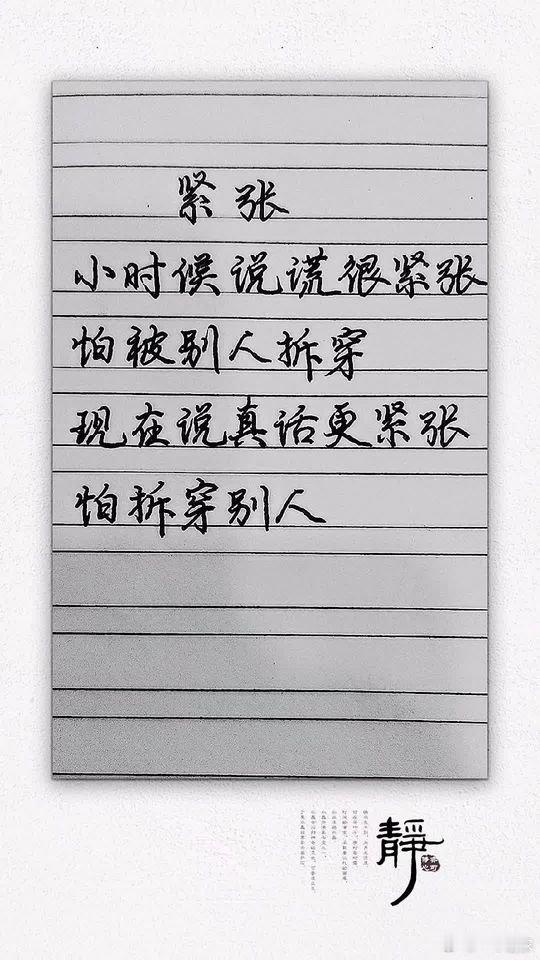 紧张
小时候说谎很紧张
怕被别人拆穿
现在说真话更紧张
怕拆穿别人
靜